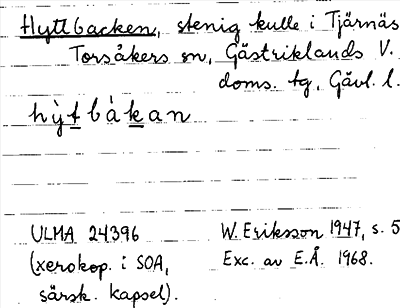 Hyttbacken, stenig kulle i Tjärnäs
Torsåkers sn, Gästriklands V.
doms. tg, Gävl. l.
hỳtbàkan
ULMA 24396
(xerokop. i SOA,
särsk. kapsel).
W. Eriksson 1947, s. 5
Exc. av E.Å. 1968.